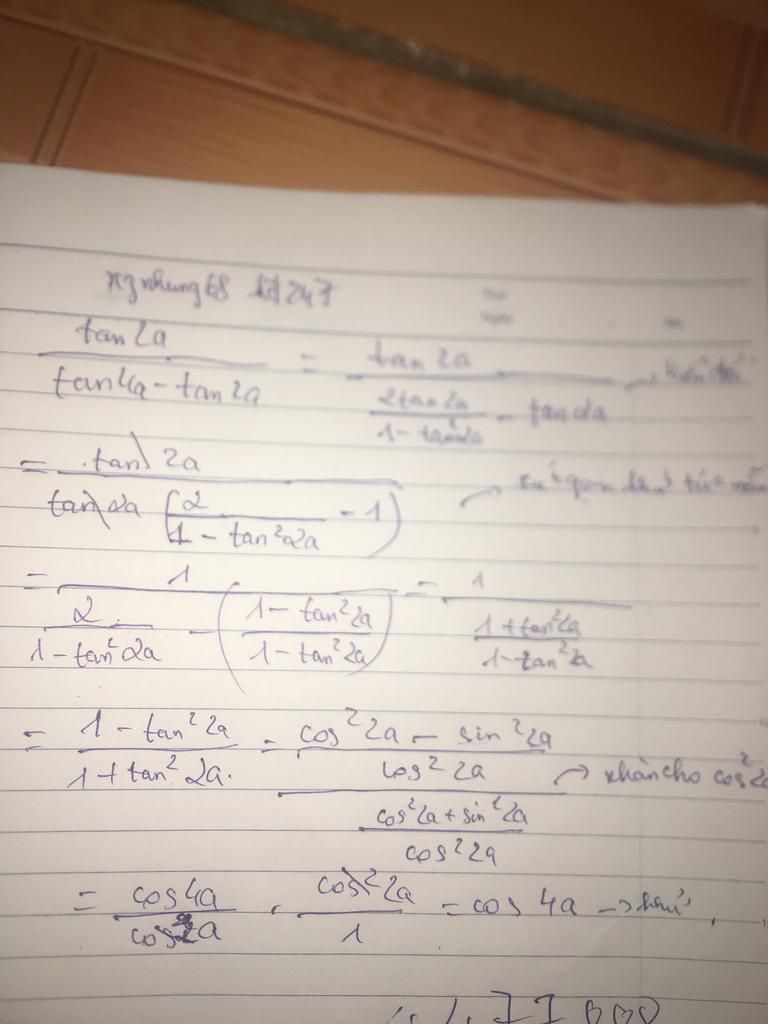 xg nhung 68 hd 247
tan 2a / (tan 4a - tan 2a) = tan 2a / (2tan 2a / (1 - tan² 2a) - tan 2a)
= tan 2a / (tan 2a (2 / (1 - tan² 2a) - 1))
= 1 / (2 / (1 - tan² 2a) - ((1 - tan² 2a) / (1 - tan² 2a))) = 1 / ((1 + tan² 2a) / (1 - tan² 2a))
= (1 - tan² 2a) / (1 + tan² 2a) = ((cos² 2a - sin² 2a) / cos² 2a) / ((cos² 2a + sin² 2a) / cos² 2a) → cho cos²
= cos 4a / cos² 2a . cos² 2a / 1 = cos 4a →